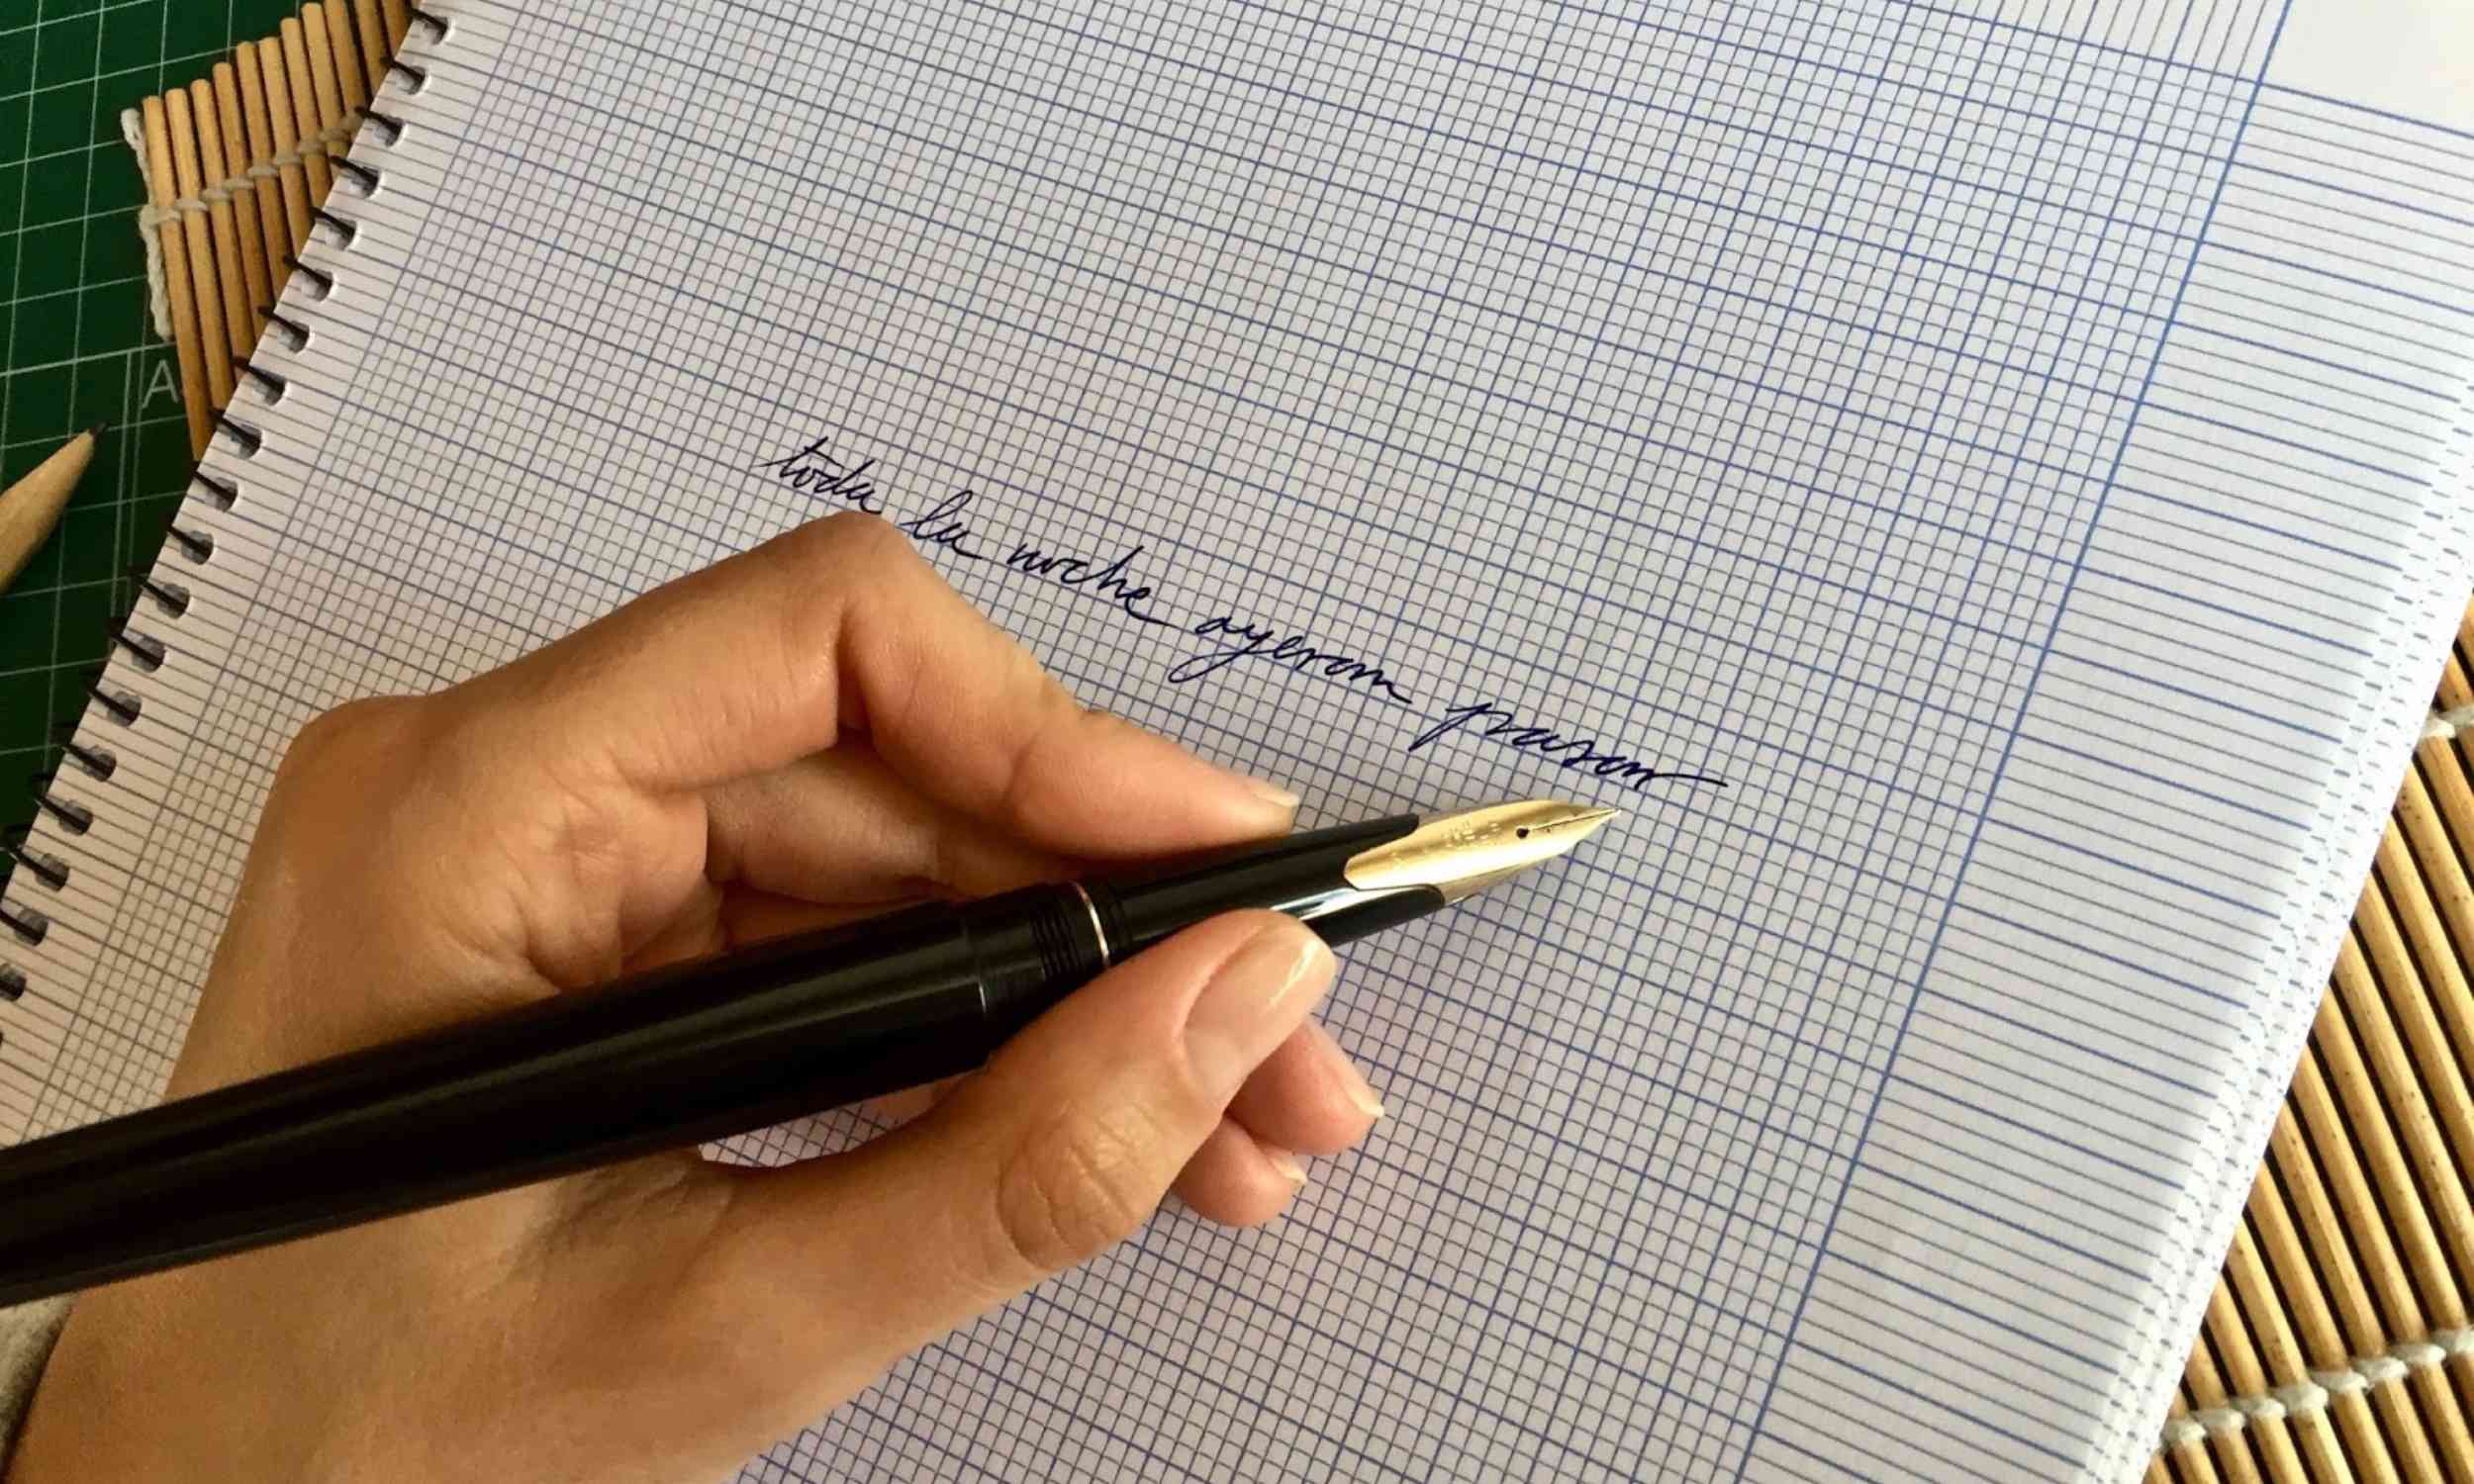 toda la noche oyeron pasar
A